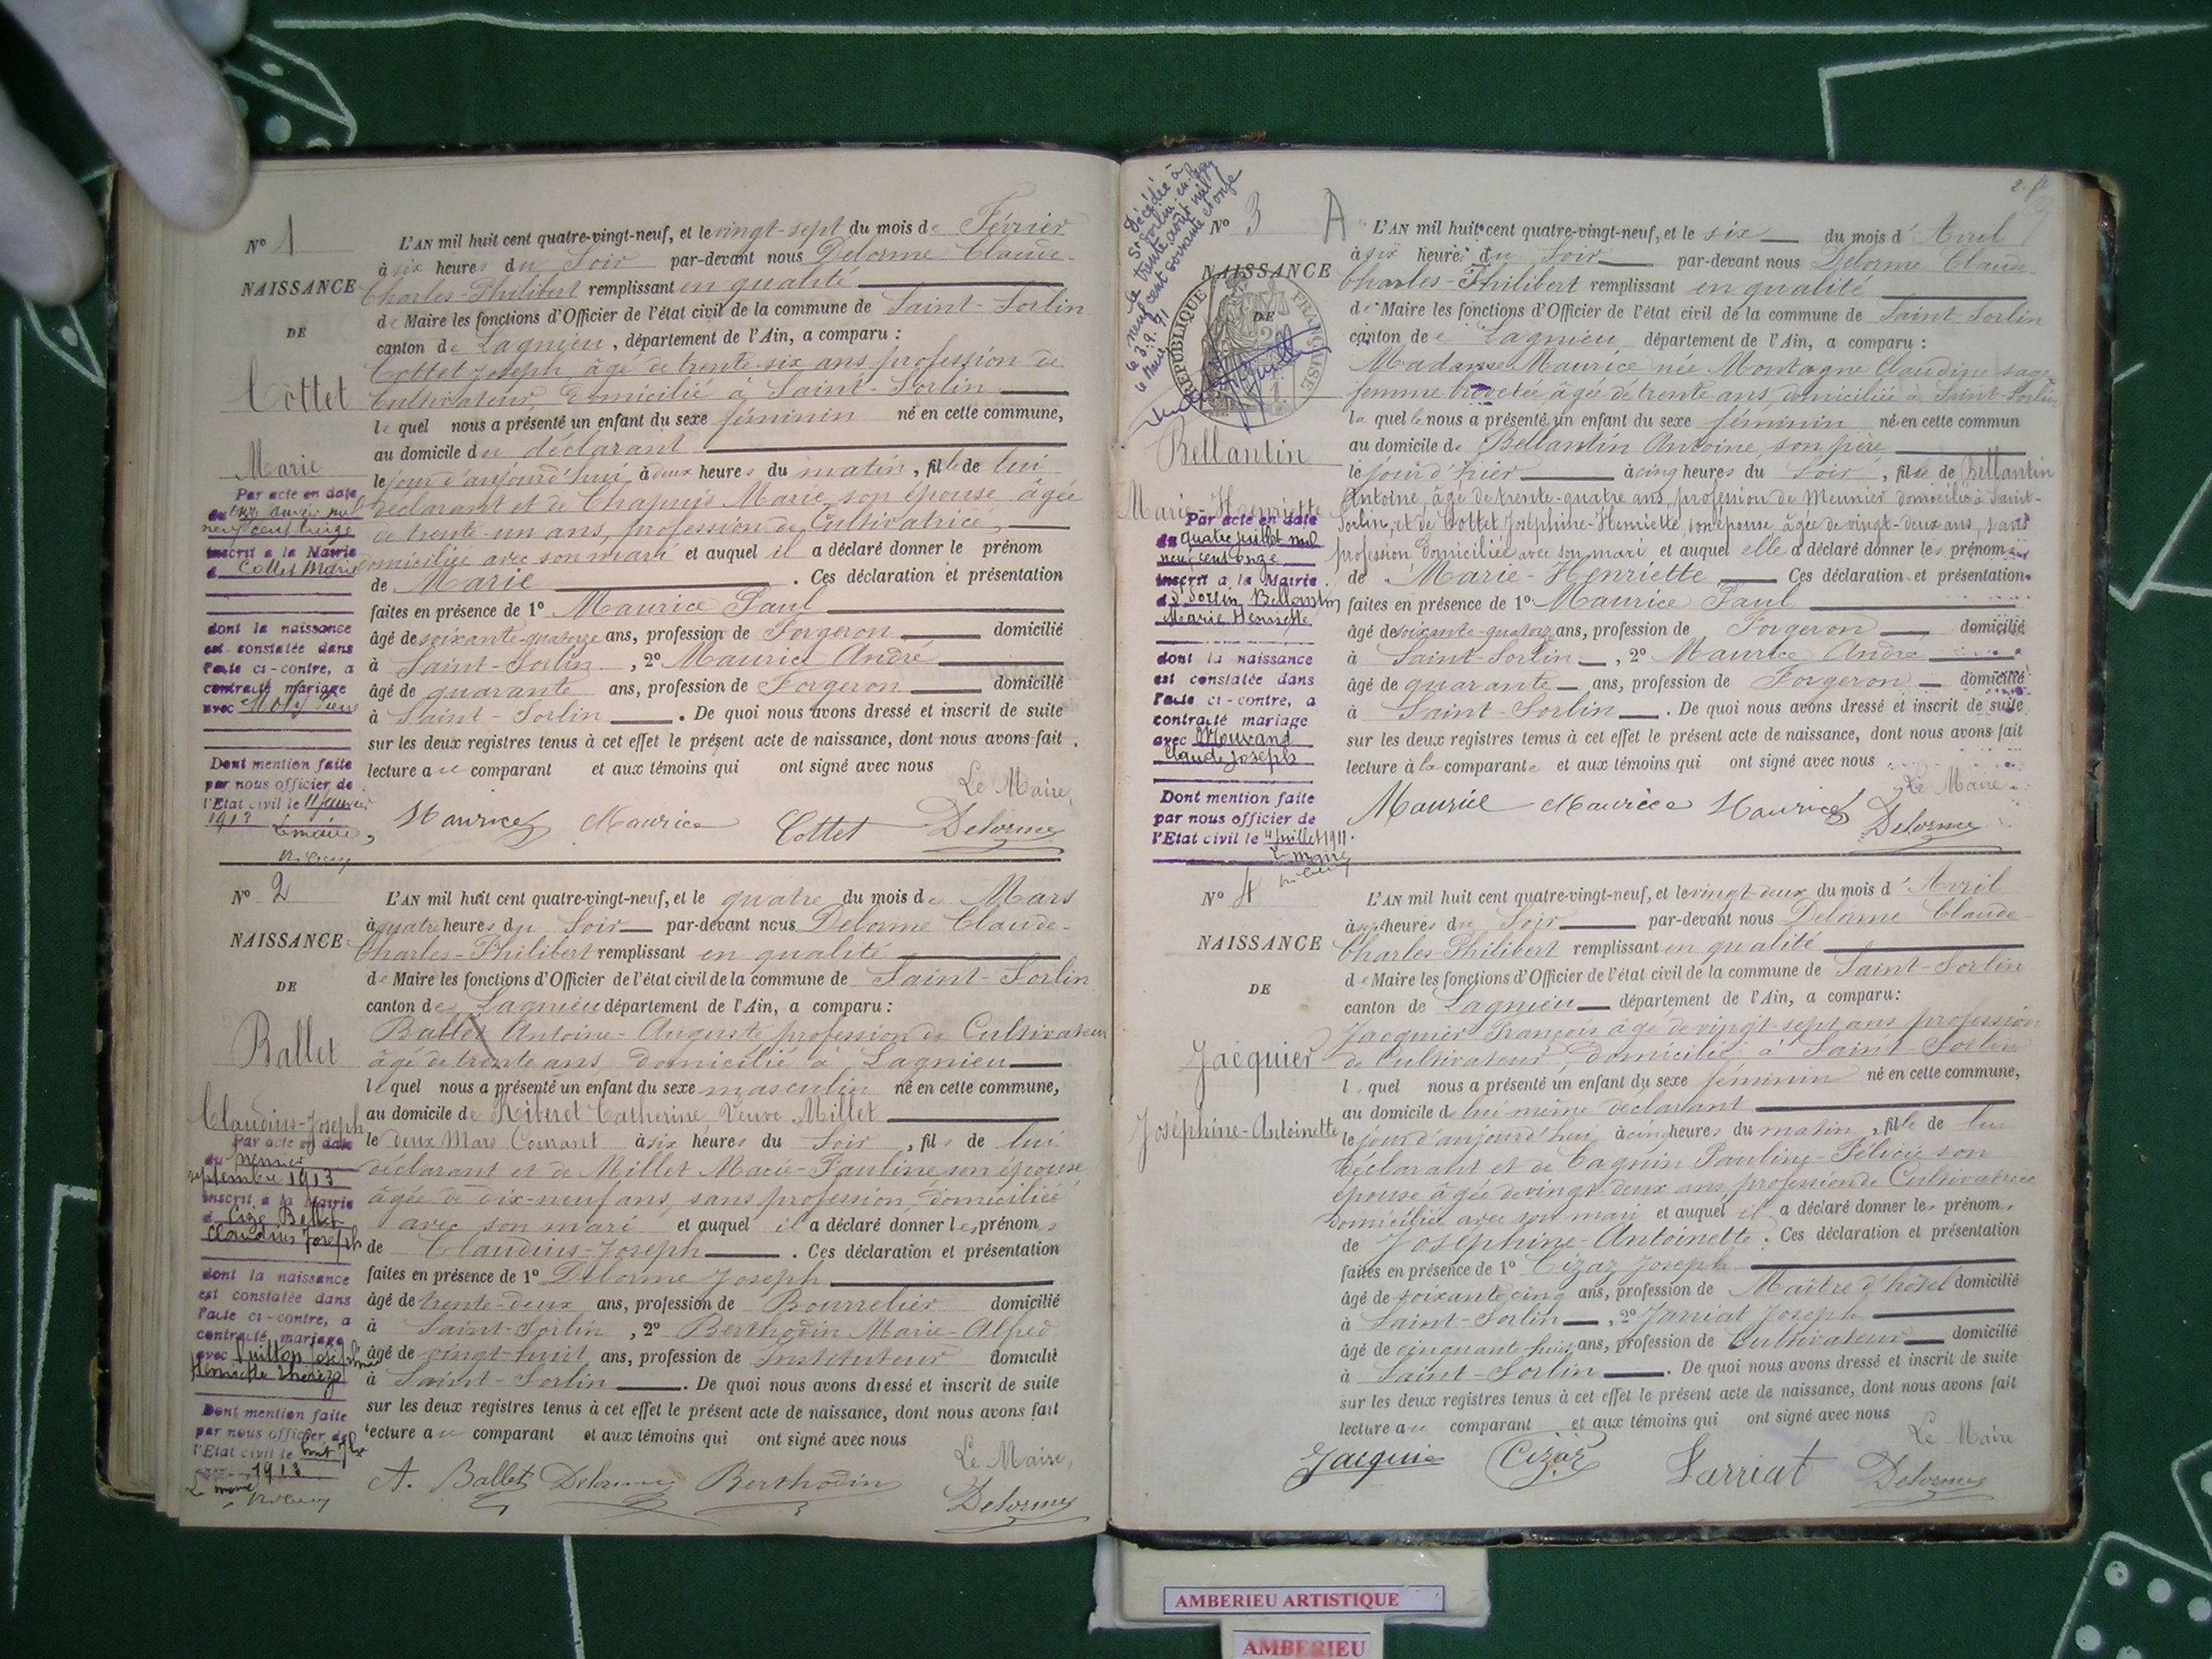 N° 1
NAISSANCE
DE
Cottet
Marie
Par acte en date
du onze janvier mil
neuf cent treize
inscrit a la Mairie
d Cottet Marie
dont la naissance
est constatée dans
l'acte ci-contre, a
contracté mariage
avec
Dont mention faite
par nous officier de
l'Etat civil le 11 janvier
1913 Le maire,
L'AN mil huit cent quatre-vingt-neuf, et le vingt-sept du mois de Février
à six heures du Soir par-devant nous Delorme Claude-
Charles-Philibert remplissant en qualité
de Maire les fonctions d'Officier de l'état civil de la commune de Saint-Sorlin
canton de Lagnieu, département de l'Ain, a comparu :
Cottet Joseph, âgé de trente-six ans profession de
Cultivateur, domicilié à Saint-Sorlin
lequel nous a présenté un enfant du sexe féminin né en cette commune,
au domicile du déclarant
le jour d'aujourd'hui à deux heures du matin, fille de lui
déclarant et de Chapuis Marie, son épouse âgée
de trente-un ans, profession de Cultivatrice,
domiciliée avec son mari et auquel il a déclaré donner le prénom
de Marie . Ces déclaration et présentation
faites en présence de 1° Maurice Paul
âgé de soixante-quatorze ans, profession de Forgeron domicilié
à Saint-Sorlin, 2° Maurice André
âgé de quarante ans, profession de Forgeron domicilié
à Saint-Sorlin . De quoi nous avons dressé et inscrit de suite
sur les deux registres tenus à cet effet le présent acte de naissance, dont nous avons fait
lecture au comparant et aux témoins qui ont signé avec nous
Le Maire,
Maurice Maurice Cottet Delorme
N° 2
NAISSANCE
DE
Ballet
Claudius-Joseph
Par acte en date
du premier
septembre 1913
inscrit a la Mairie
d Cize Ballet
Claudius Joseph
dont la naissance
est constatée dans
l'acte ci-contre, a
contracté mariage
avec Guitton Joséphine
Henriette Thérèze
Dont mention faite
par nous officier de
l'Etat civil le huit 7bre
1913
Le maire
L'AN mil huit cent quatre-vingt-neuf, et le quatre du mois de Mars
à quatre heures du Soir par-devant nous Delorme Claude-
Charles-Philibert remplissant en qualité
de Maire les fonctions d'Officier de l'état civil de la commune de Saint-Sorlin
canton de Lagnieu département de l'Ain, a comparu :
Ballet Antoine-Auguste profession de Cultivateur
âgé de trente ans, domicilié à Lagnieu
lequel nous a présenté un enfant du sexe masculin né en cette commune,
au domicile de Riberet Catherine Veuve Millet
le deux Mars Courant à six heures du Soir, fils de lui
déclarant et de Millet Marie-Pauline son épouse,
âgée de dix-neuf ans, sans profession, domiciliée
avec son mari et auquel il a déclaré donner les prénoms
de Claudius-Joseph . Ces déclaration et présentation
faites en présence de 1° Delorme Joseph
âgé de trente-deux ans, profession de Bourrelier domicilié
à Saint-Sorlin, 2° Berthodin Marie-Alfred
âgé de vingt-huit ans, profession de Instituteur domicilié
à Saint-Sorlin . De quoi nous avons dressé et inscrit de suite
sur les deux registres tenus à cet effet le présent acte de naissance, dont nous avons fait
lecture au comparant et aux témoins qui ont signé avec nous
Le Maire,
A. Ballet Delorme Berthodin Delorme
2. f
Décédée à
St Sorlin en Bugey
le trente août mil
neuf cent soixante et onze
le 3.9.71
le Maire
N° 3 A
NAISSANCE
DE
RÉPUBLIQUE FRANÇAISE
Bellantin
Marie-Henriette
Par acte en date
du quatre juillet mil
neuf cent onze
inscrit a la Mairie
d St Sorlin Bellantin
Marie Henriette
dont la naissance
est constatée dans
l'acte ci-contre, a
contracté mariage
avec Mourand
Claude Joseph
Dont mention faite
par nous officier de
l'Etat civil le 4 juillet 1911.
Le maire
L'AN mil huit cent quatre-vingt-neuf, et le six du mois d'Avril
à six heures du Soir par-devant nous Delorme Claude-
Charles-Philibert remplissant en qualité
de Maire les fonctions d'Officier de l'état civil de la commune de Saint-Sorlin
canton de Lagnieu département de l'Ain, a comparu :
Madame Maurice née Montagne Claudine sage
femme brevetée âgée de trente ans, domiciliée à Saint-Sorlin
laquelle nous a présenté un enfant du sexe féminin né en cette commun
au domicile de Bellantin Antoine, son père
le jour d'hier à cinq heures du Soir, fille de Bellantin
Antoine, âgé de trente-quatre ans, profession de Meunier domicilié à Saint-
Sorlin, et de Cottet Joséphine-Henriette, son épouse, âgée de vingt-deux ans, sans
profession domiciliée avec son mari et auquel elle a déclaré donner les prénoms
de Marie-Henriette Ces déclaration et présentation
faites en présence de 1° Maurice Paul
âgé de soixante-quatorze ans, profession de Forgeron domicilié
à Saint-Sorlin, 2° Maurice André
âgé de quarante ans, profession de Forgeron domicilié
à Saint-Sorlin . De quoi nous avons dressé et inscrit de suite
sur les deux registres tenus à cet effet le présent acte de naissance, dont nous avons fait
lecture à la comparante et aux témoins qui ont signé avec nous
Le Maire
Maurice Maurice Maurice Delorme
N° 4
NAISSANCE
DE
Jacquier
Joséphine-Antoinette
L'AN mil huit cent quatre-vingt-neuf, et le vingt-deux du mois d'Avril
à sept heures du Soir par-devant nous Delorme Claude-
Charles-Philibert remplissant en qualité
de Maire les fonctions d'Officier de l'état civil de la commune de Saint-Sorlin
canton de Lagnieu département de l'Ain, a comparu:
Jacquier François âgé de vingt-sept ans profession
de Cultivateur, domicilié à Saint-Sorlin
lequel nous a présenté un enfant du sexe féminin né en cette commune,
au domicile de lui même déclarant
le jour d'aujourd'hui à cinq heures du matin, fille de lui
déclarant et de Cagnin Pauline-Félicie son
épouse âgée de vingt-deux ans, profession de Cultivatrice
domiciliée avec son mari et auquel il a déclaré donner les prénoms
de Joséphine-Antoinette. Ces déclaration et présentation
faites en présence de 1° Cizaz Joseph
âgé de soixante-cinq ans, profession de Maître d'hôtel domicilié
à Saint-Sorlin, 2° Jarriat Joseph
âgé de ans, profession de Cultivateur domicilié
à Saint-Sorlin . De quoi nous avons dressé et inscrit de suite
sur les deux registres tenus à cet effet le présent acte de naissance, dont nous avons fait
lecture au comparant et aux témoins qui ont signé avec nous
Le Maire
Jacquier Cizaz Jarriat Delorme
AMBERIEU ARTISTIQUE
AMBERIEU